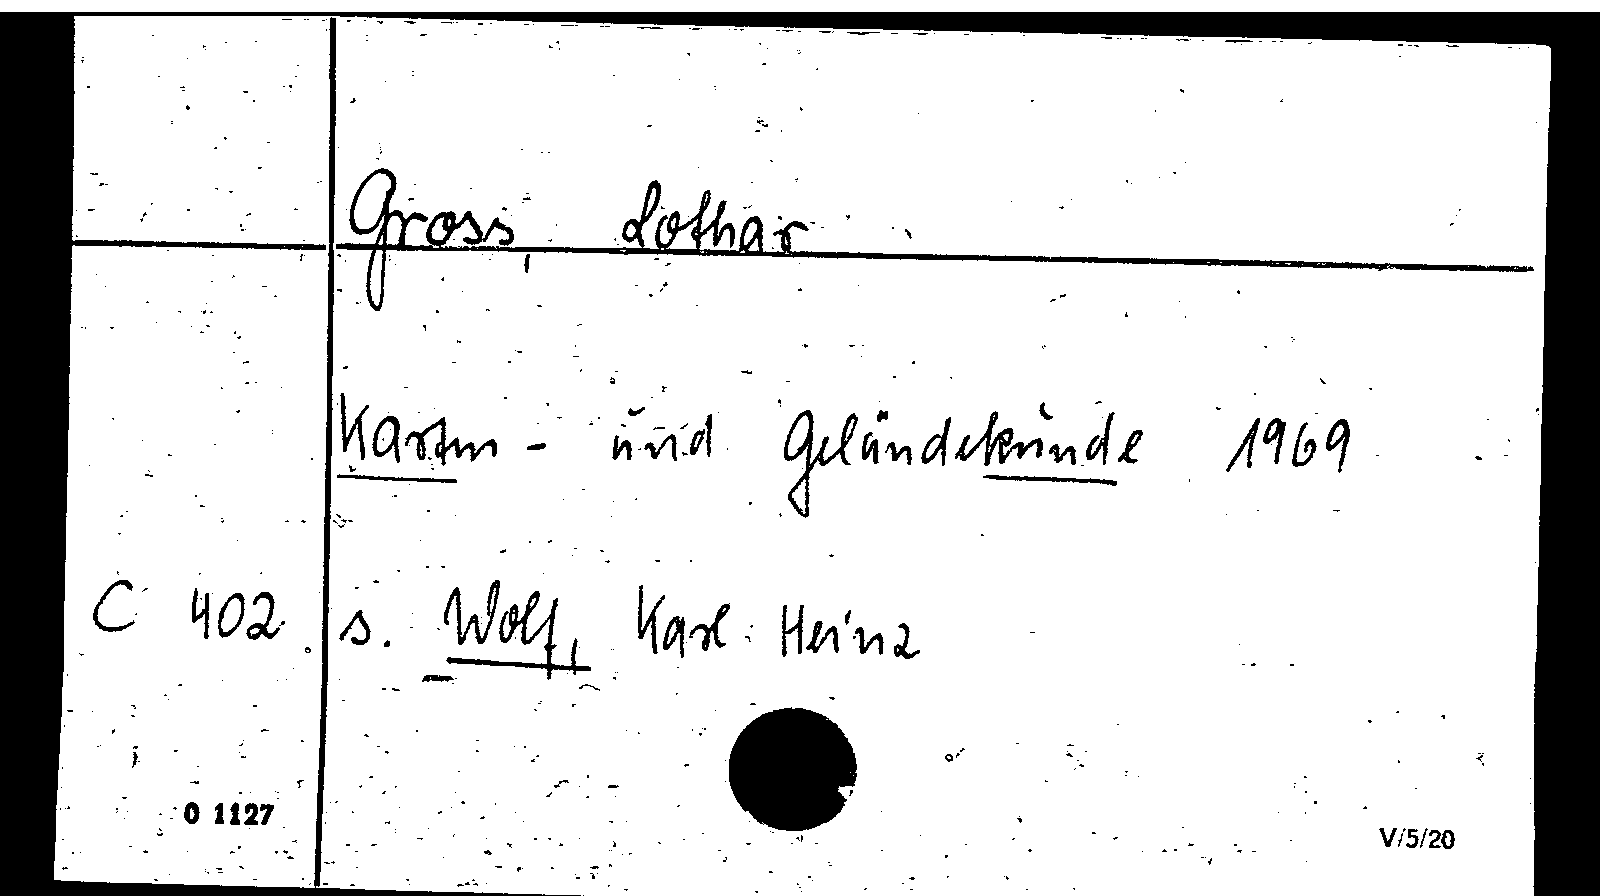 Gross, Lothar
Karten- und Geländekunde 1969
C 402 s. Wolf, Karl Heinz
0 1127
V/5/20